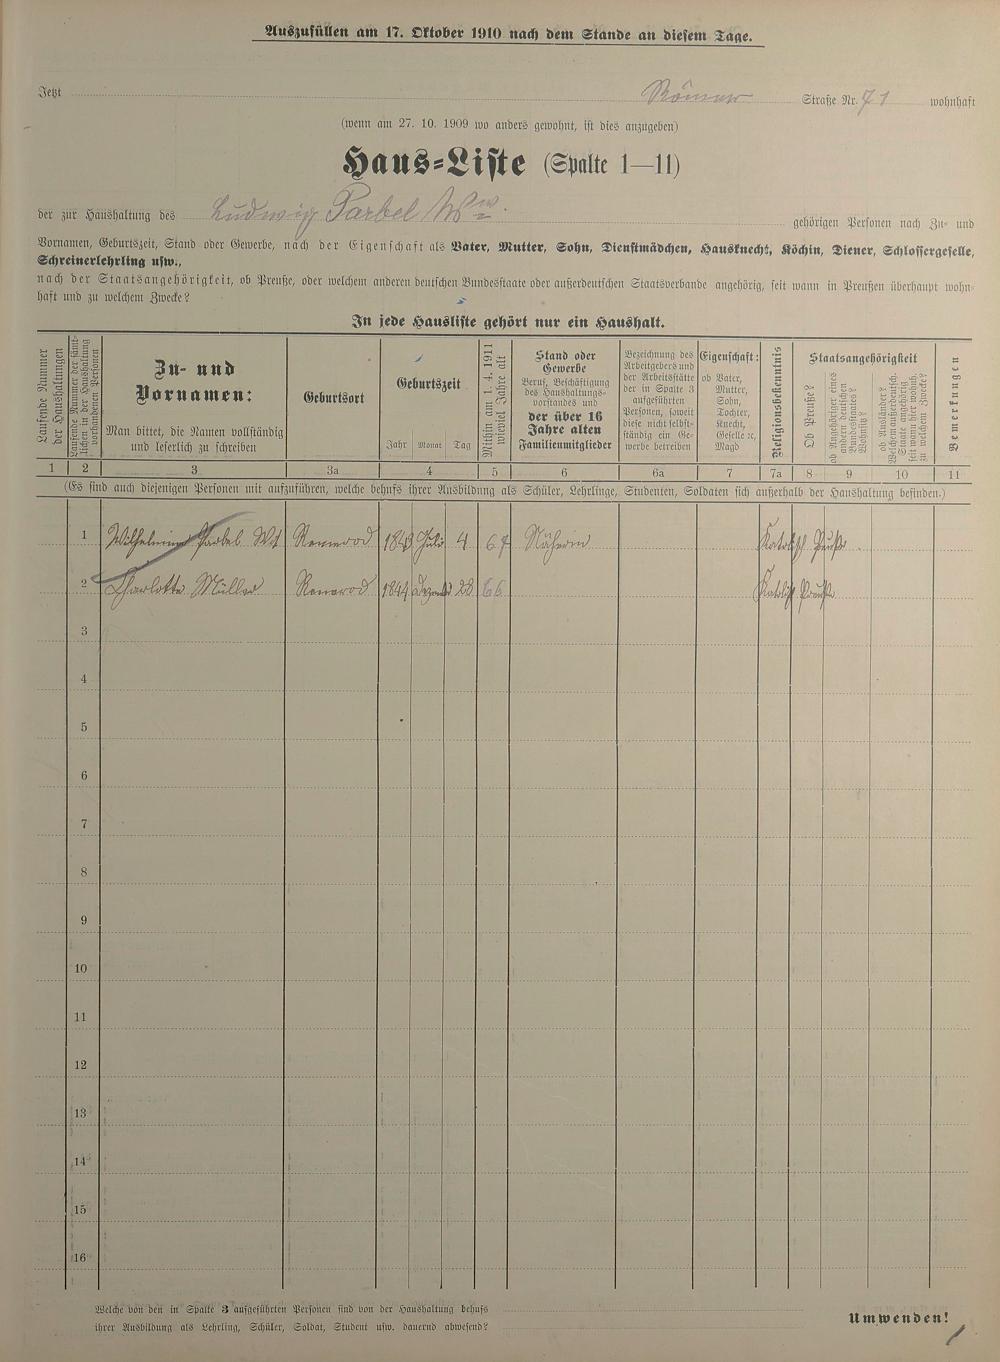 Auszufüllen am 17. Oktober 1910 nach dem Stande an diesem Tage.
Jetzt Römer Straße Nr. 71 wohnhaft
(wenn am 27. 10. 1909 wo anders gewohnt, ist dies anzugeben)
Haus-Liste (Spalte 1—11)
der zur Haushaltung des Ludwig Parbel Ww. gehörigen Personen nach Zu- und
Vornamen, Geburtszeit, Stand oder Gewerbe, nach der Eigenschaft als Vater, Mutter, Sohn, Dienstmädchen, Hausknecht, Köchin, Diener, Schlossergeselle,
Schreinerlehrling usw.,
nach der Staatsangehörigkeit, ob Preuße, oder welchem anderen deutschen Bundesstaate oder außerdeutschen Staatsverbande angehörig, seit wann in Preußen überhaupt wohn-
haft und zu welchem Zwecke?
In jede Hausliste gehört nur ein Haushalt.
Laufende Nummer
der Haushaltungen
Laufende Nummer der sämt-
lichen in der Haushaltung
vorhandenen Personen
Zu- und
Vornamen:
Man bittet, die Namen vollständig
und leserlich zu schreiben
Geburtsort
Geburtszeit
Jahr Monat Tag
Mithin am 1. 4. 1911
wieviel Jahre alt
Stand oder
Gewerbe
Beruf, Beschäftigung
des Haushaltungs-
vorstandes und
der über 16
Jahre alten
Familienmitglieder
Bezeichnung des
Arbeitgebers und
der Arbeitsstätte
der in Spalte 3
aufgeführten
Personen, soweit
diese nicht selbst-
ständig ein Ge-
werbe betreiben
Eigenschaft:
ob Vater,
Mutter,
Sohn,
Tochter,
Knecht,
Geselle ꝛc,
Magd
Religionsbekenntnis
Staatsangehörigkeit
Ob Preuße?
ob Angehöriger eines
andern deutschen
Bundesstaates?
Wohnsitz?
ob Ausländer?
Welchem außerdeutsch.
Staate angehörig
seit wann hier wohnh.
zu welchem Zwecke?
Bemerkungen
1 2 3 3a 4 5 6 6a 7 7a 8 9 10 11
(Es sind auch diejenigen Personen mit aufzuführen, welche behufs ihrer Ausbildung als Schüler, Lehrlinge, Studenten, Soldaten sich außerhalb der Haushaltung befinden.)
1 Wilhelmine Parbel Wt Rennerod 1843 Juli 4 67 Näherin Katolisch Preuße
2 Charlotte Müller Rennerod 1844 Dezember 28 66 Katolisch Preuße
3
4
5
6
7
8
9
10
11
12
13
14
15
16
Welche von den in Spalte 3 aufgeführten Personen sind von der Haushaltung behufs
ihrer Ausbildung als Lehrling, Schüler, Soldat, Student usw. dauernd abwesend?
Umwenden!